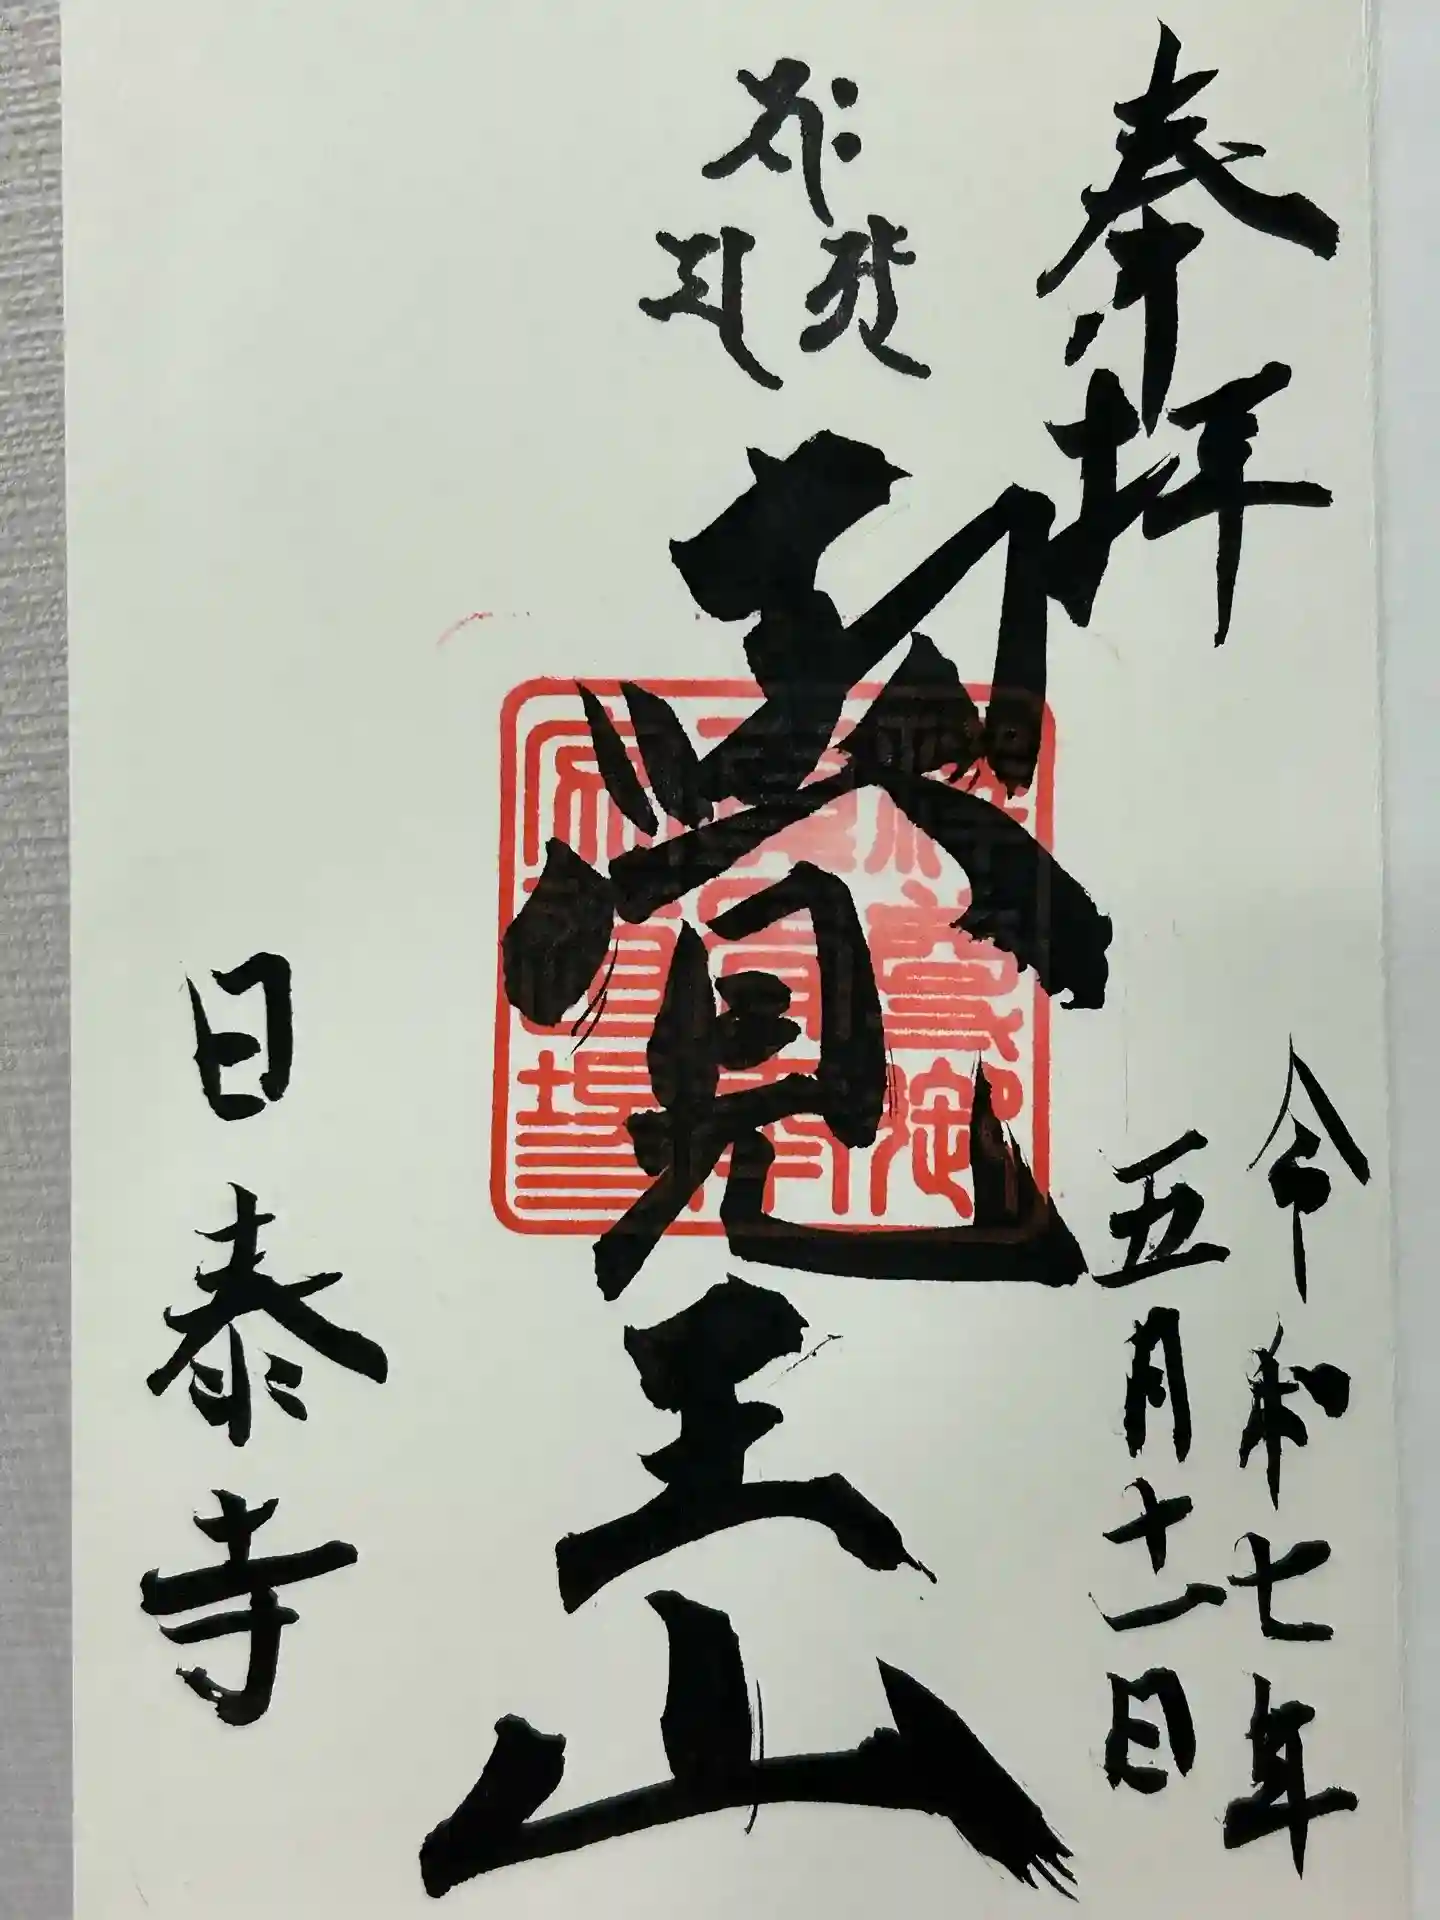 奉拝
令和七年
五月十一日
覺王山
日泰寺